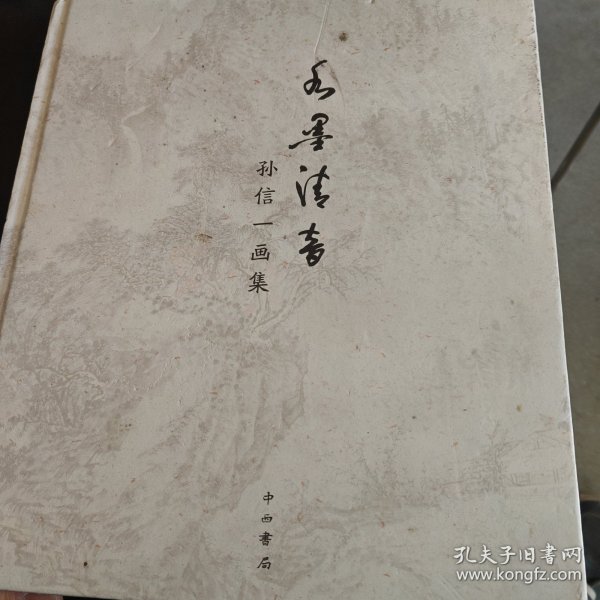 水墨清音
孙信一画集
中西書局
孔夫子旧書网
www.kongfz.com